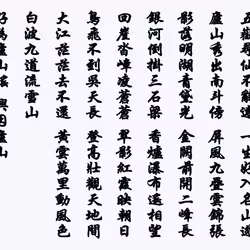 五嶽尋仙不辭遠 一生好入名山遊
廬山秀出南斗傍 屏風九疊雲錦張
影落明湖青黛光 金闕前開二峰長
銀河倒掛三石梁 香爐瀑布遙相望
回崖沓嶂凌蒼蒼 翠影紅霞映朝日
鳥飛不到吳天長 登高壯觀天地間
大江茫茫去不還 黃雲萬里動風色
白波九道流雪山
好為廬山謠 興因廬山